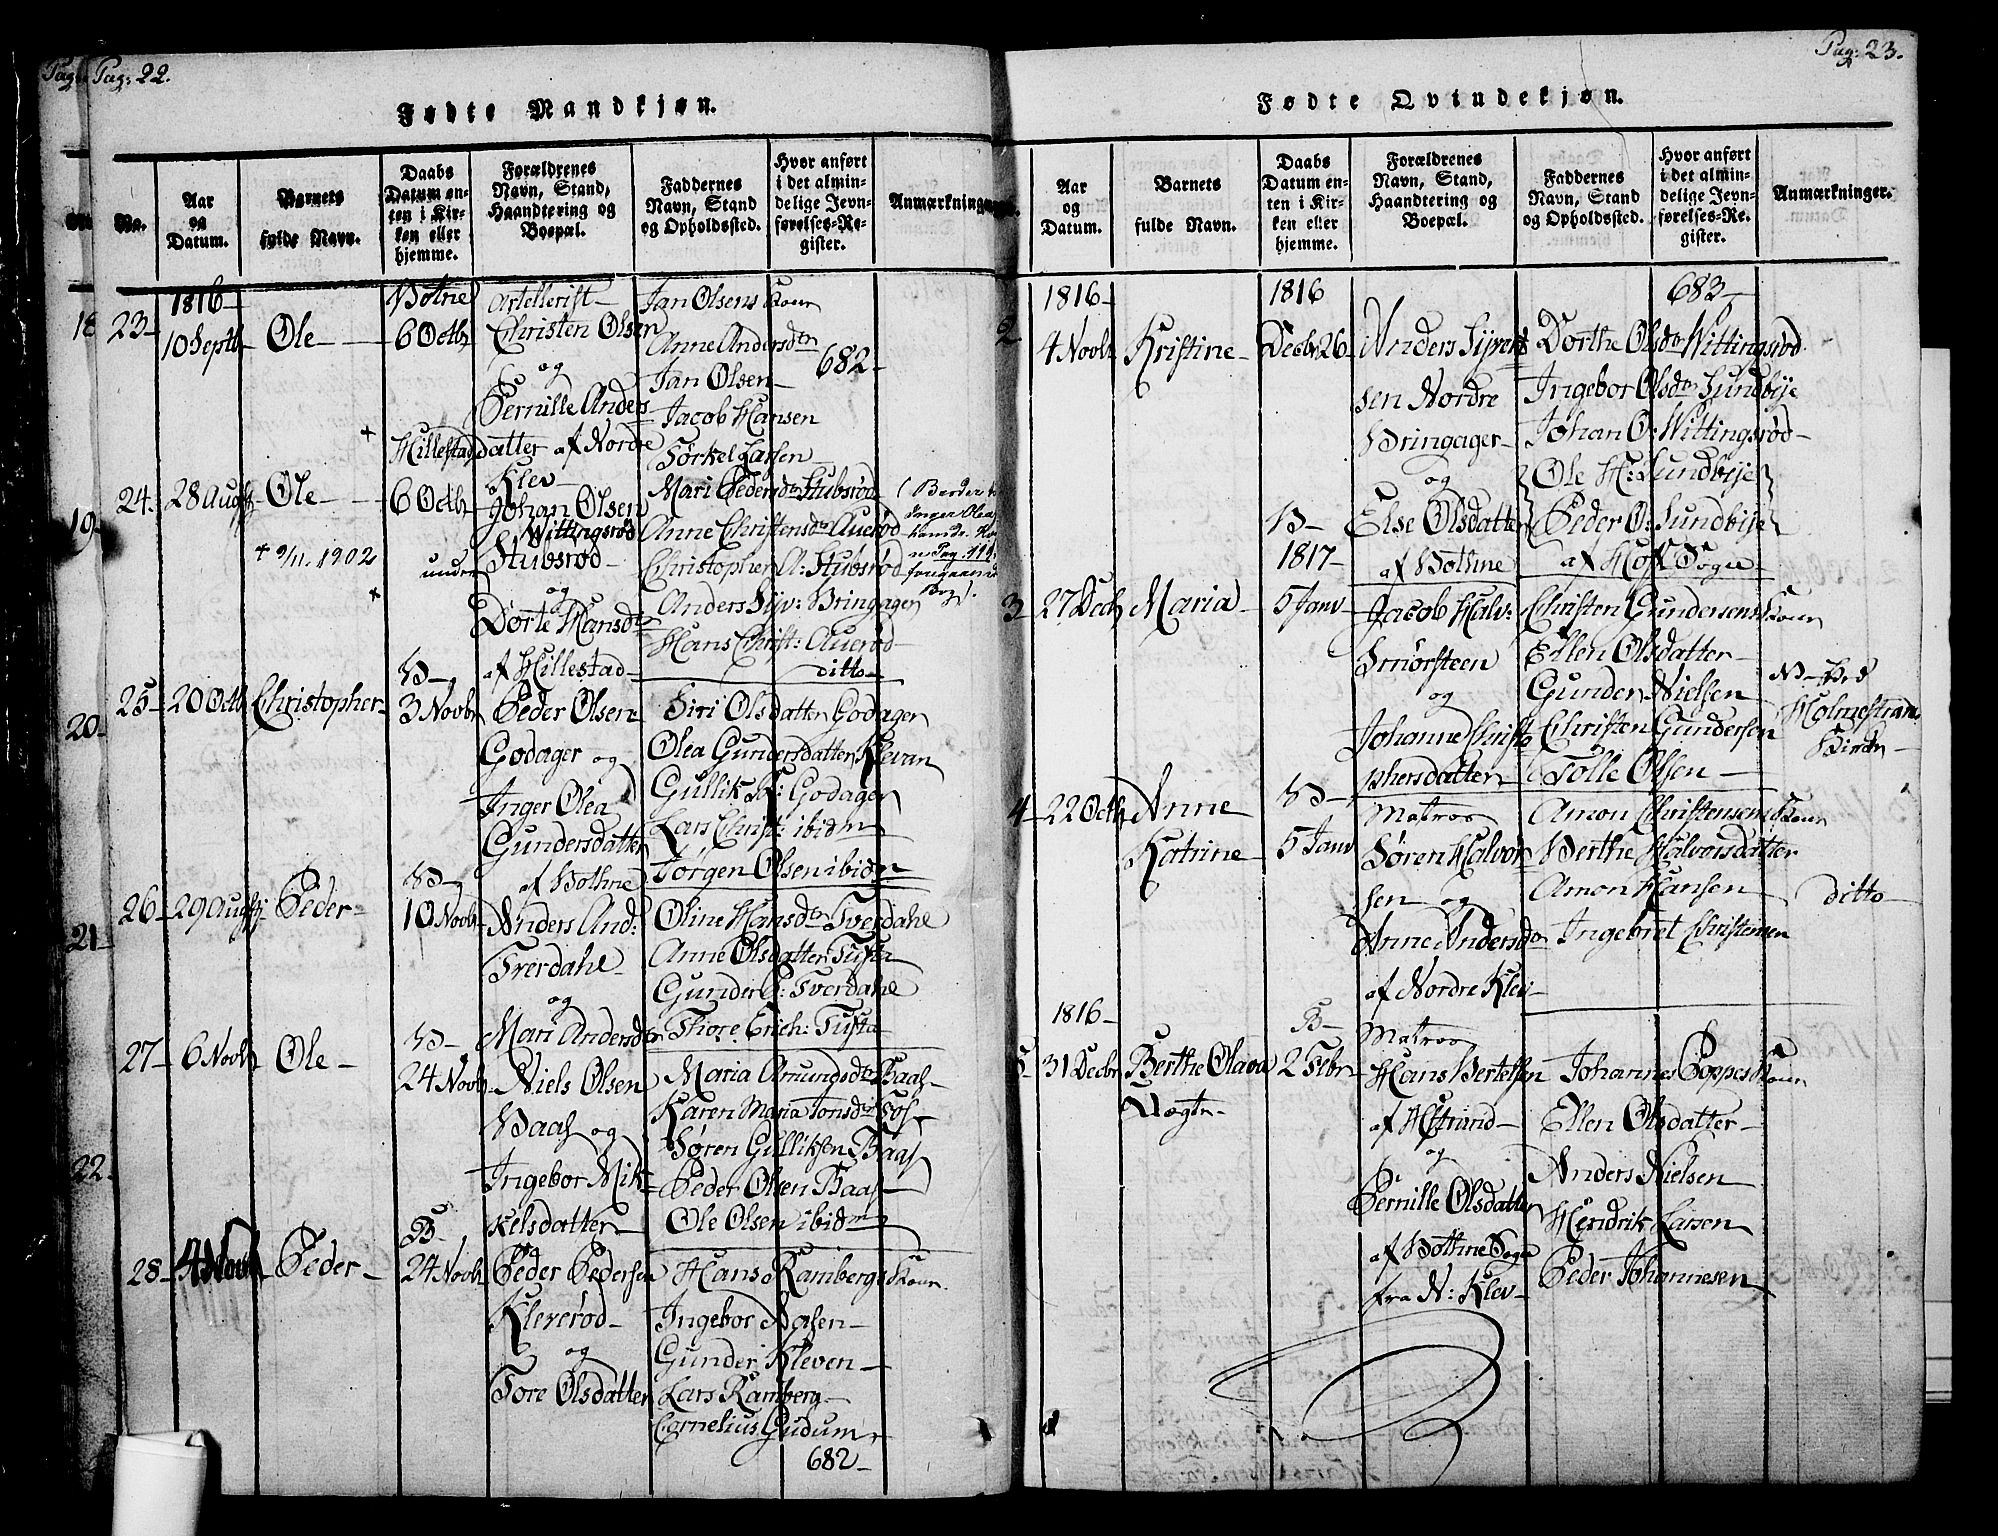 Pag: 22.
Fødte Mandkjøn.
No.
Aar og Datum.
Barnets fulde Navn.
Daabs Datum enten i Kirken eller hjemme.
Forældrenes Navn, Stand, Haandtering og Boepæl.
Faddernes Navn, Stand og Opholdssted.
Hvor anført i det almindelige Jevnførelses-Register.
Anmærkninger.
23-
1816-
10 Septb
Ole
Bothne
6 Octb
Artellerist-
Christen Olsen
og
Pernille Anders
datter af Nordre
Klev
Jan Olsens Kone
Anne Andersdtr
Jan Olsen-
Jacob Hansen
Torkel Larsen
682-
24.
28 Augst
Ole
+ 9/11. 1902
Hillestad
6 Octb
Johan Olsen
Wittingsrød
Stubsrød-
og
Dorte Hansdtr
af Hillestad-
Mari Pedersdtr Stubsrød
Anne Christensdtr Auerød
Christopher A: Stubsrød
Anders Syv: Bringager
Hans Christ: Auerød
ditto-
25-
20 Octb
Christopher-
B-
3 Novbr
Peder Olsen
Godager og
Inger Olea
Gundersdatter
af Bothne
Siri Olsdatter Godager
Olea Gundersdatter Klevan
Gullik K: Godager
Lars Christ: ibidm
Jørgen Olsen ibidm
26-
29 Augst
Peder-
B-
10 Novb
Anders And:
Tverdahl-
og
Mari Andersdtr
Oline Hansdtr Tverdahl
Anne Olsdatter Tufta
Gunder P: Tverdahl
Thore Erich: Tufta
27-
6 Novb
Ole-
B-
24 Novb
Niels Olsen
Baas og
Ingebor Mik
kelsdatter
Maria Amundsdtr Baas-
Karen Maria Tonsdtr Fos-
Søren Gulliksen Baas
Peder Olsen Baas-
Ole Olsen ibidm
28-
4 Novb
Peder-
B-
24 Novb
Peder Pedersen
Kleverød-
og
Tore Olsdatter
Hans Rambergs Kone
Ingebor Aasen-
Gunder Kleven-
Lars Ramberg-
Cornelius Gudum
682-
Pag: 23.
Fødte Qvindekjøn.
Aar og Datum.
Barnets fulde Navn.
Daabs Datum enten i Kirken eller hjemme.
Forældrenes Navn, Stand, Haandtering og Boepæl.
Faddernes Navn, Stand og Opholdssted.
Hvor anført i det almindelige Jevnførelses-Register.
Anmærkninger.
2
1816-
4 Novb
Kristine-
1816
Decbr 26
Anders Syvert
sen Nordre
Bringager-
og
Else Olsdatter
af Bothne
683-
Dorthe Olsdtr Wittingsrød
Ingebor Olsdtr Sundbye
Johan O: Wittingsrød-
Ole H: Sundbye
Peder O: Sundbye
af Hof Sogn
3
27 Decb
Maria-
B-
1817-
5 Janv
Jacob Halv:
Smørsteen
og
Johanne Christo
phersdatter
Christen Gundersens Kone
Ellen Olsdatter-
Gunder Nielsen
Christen Gundersen
Tolle Olsen-
Holmestran
4
22 Octb
Anne
Katrine-
B-
5 Janv
Matros
Søren Halvor
sen og
Anne Andersdtr
af Nordre Klev-
Amon Christensens Kone
Berthe Halvorsdatter
Amon Hansen
Ingebret Christensen
ditto-
5-
1816-
31 Decbr
Berthe Olava
Uægte-
B-
2 Febr
Matros
Hans Bertelsen
af HStrand-
og
Pernille Olsdatter
af Bothne Sogn
fra N: Klev-
Johannes Poppes Kone
Ellen Olsdatter-
Anders Nielsen
Hendrik Larsen
Peder Johannesen